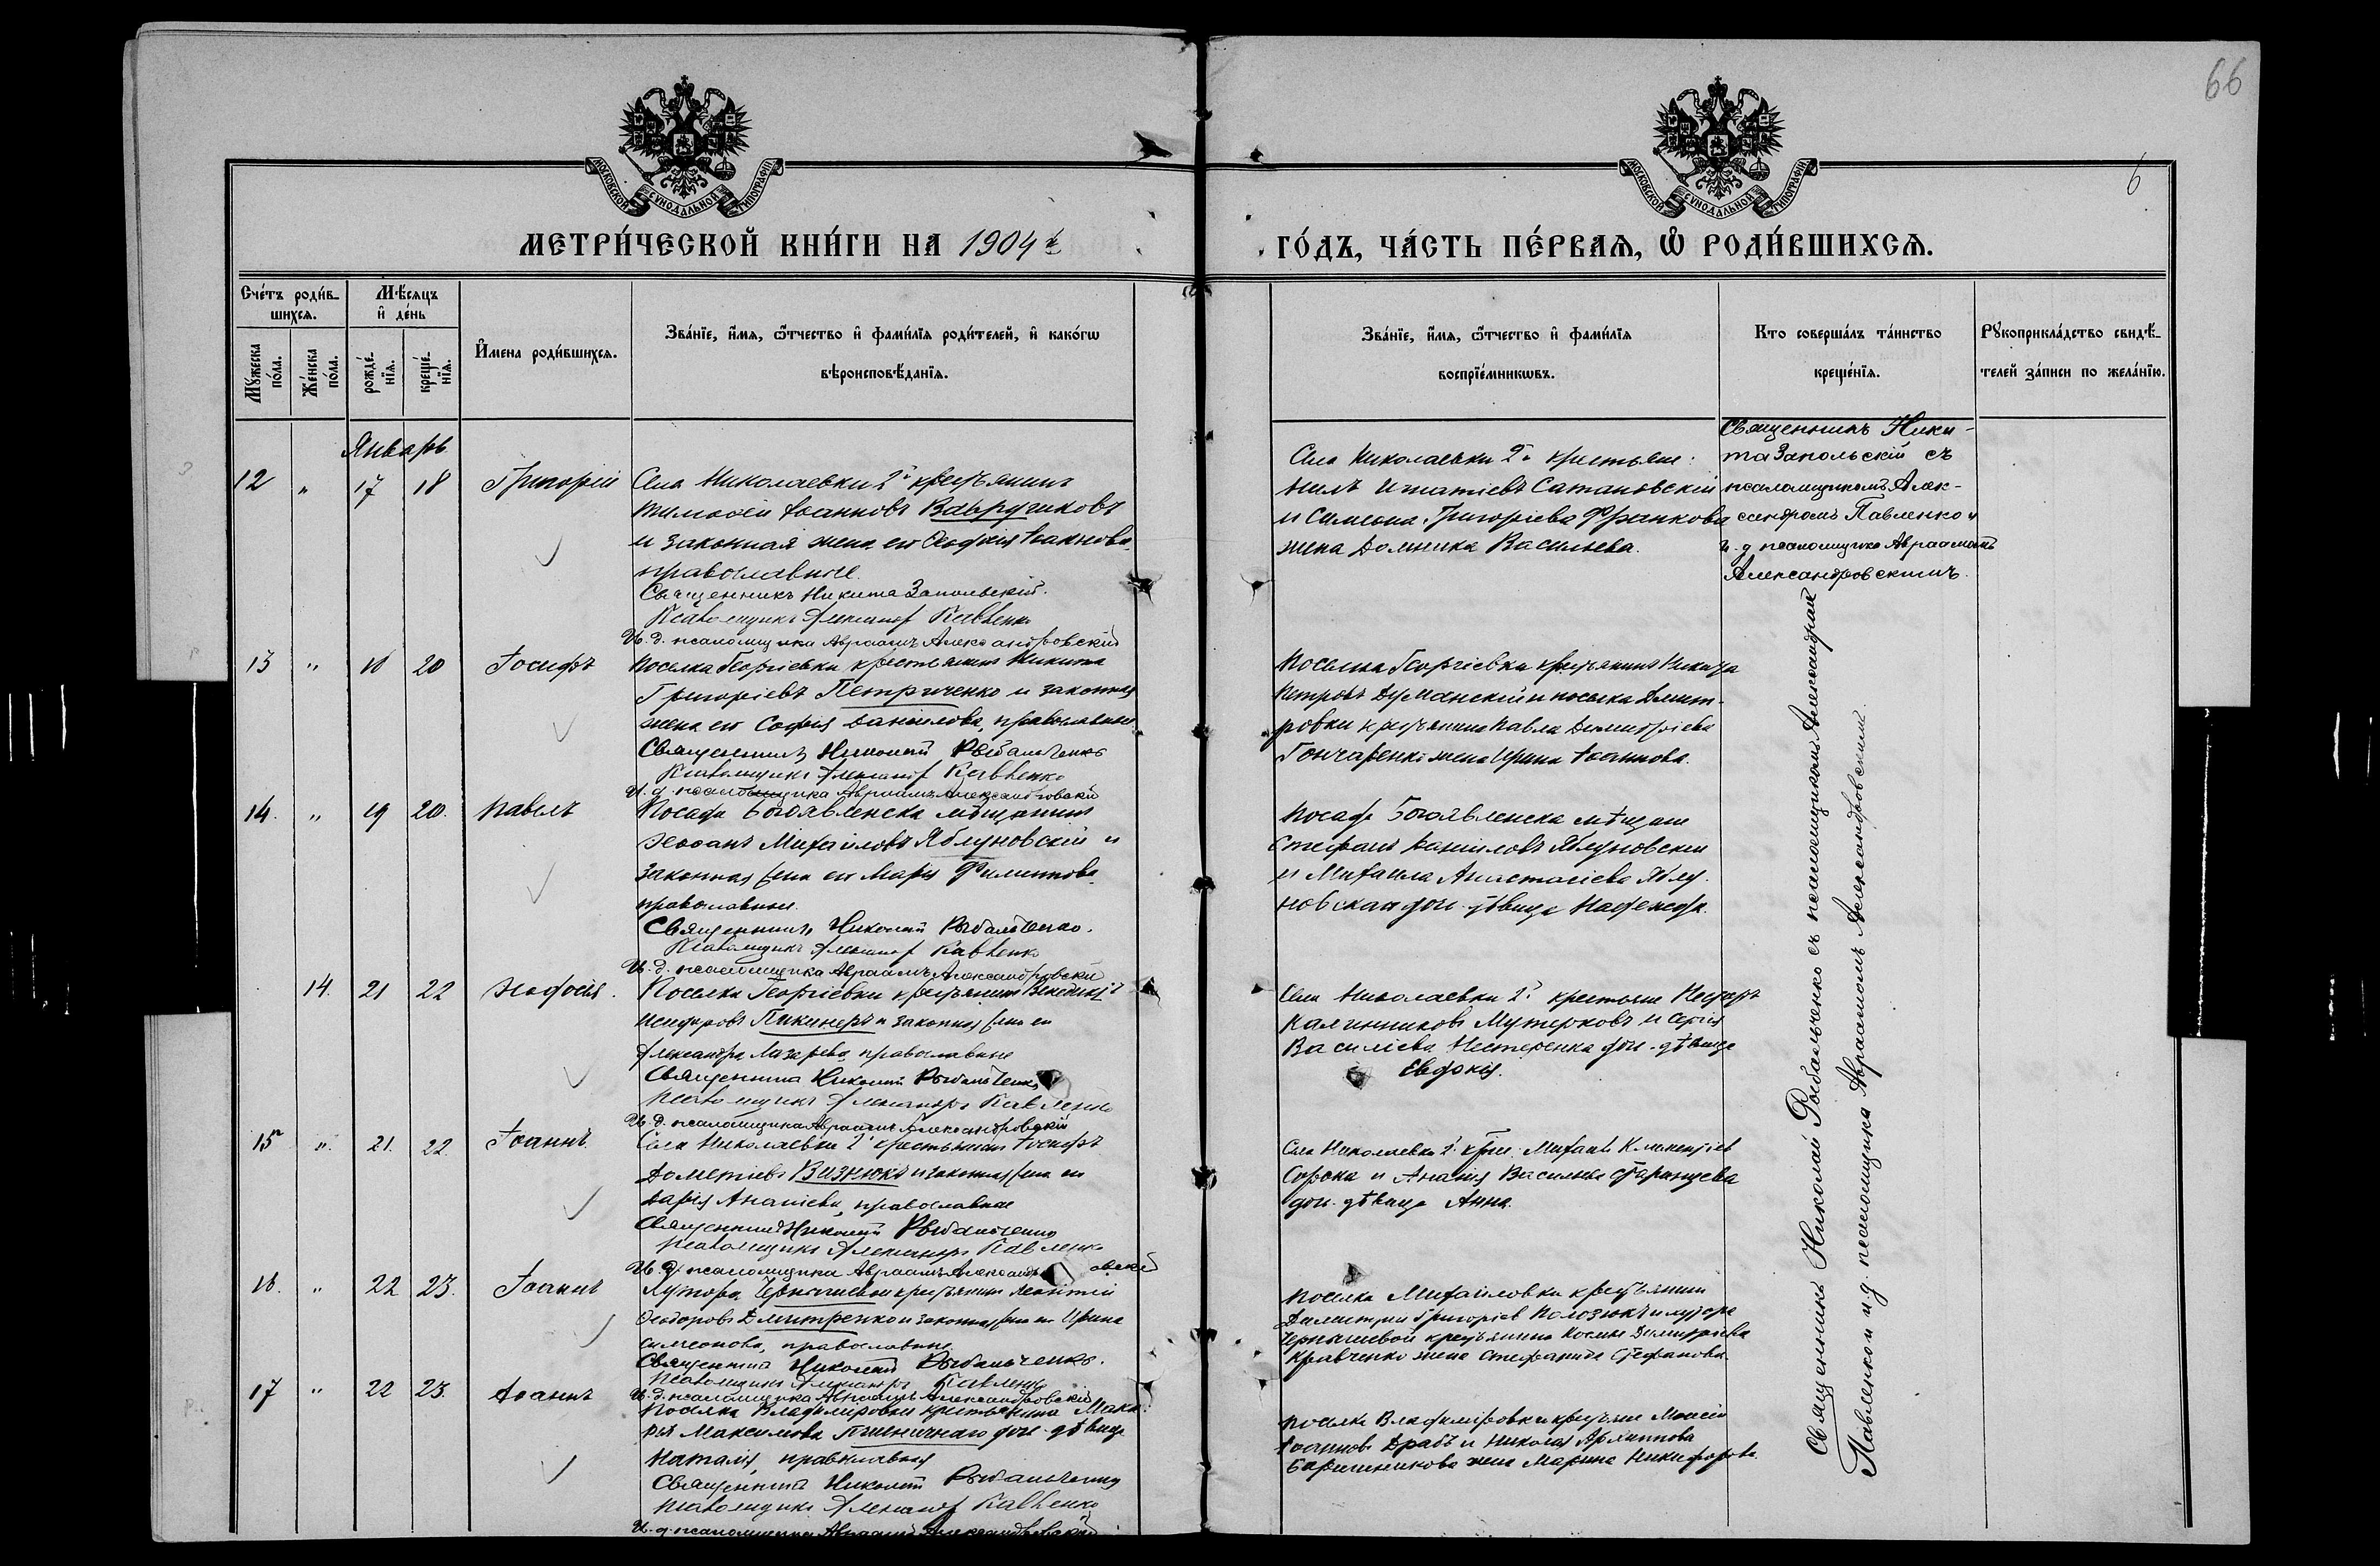 66
6
МОСКОВСКОЙ СѴНОДАЛЬНОЙ ТИПОГРАФІИ
МОСКОВСКОЙ СѴНОДАЛЬНОЙ ТИПОГРАФІИ
МЕТРИ́ЧЕСКОЙ КНИ́ГИ НА 1904й
ГО́ДЪ, ЧА́СТЬ ПЕ́РВАЯ, Ѽ РОДИ́ВШИХСЯ.
Сче́тъ роди́в-
шихся.
Мѣ́сяцъ
и҆ де́нь
Мꙋ́жеска по́ла.
Же́нска по́ла.
рожде́нїѧ.
креще́нїѧ.
И҆мена роди́вшихся.
Зва́нїе, и҆́мѧ, ѻ҆́тчество и҆ фами́лїѧ роди́телей, и҆ како́гѡ
вѣроисповѣ́данїѧ.
Зва́нїе, и҆́мѧ, ѻ҆́тчество и҆ фами́лїѧ
воспрїе́мникѡвъ.
Кто соверша́лъ та́инство
креще́нїѧ.
Рꙋкоприкла́дство свидѣ́-
телей за́писи по жела́нїю.
Январь
12 " 17 18 Григорій
Села Николаевки 2й крестьянинъ
Тимофей Іоанновъ
и законная жена его Іоаннова,
православные.
Священникъ Никита Запольскій.
Псаломщикъ Александръ Павленко
И. д. псаломщика Авраамъ Александровскій
Села Николаевки 2й крестьяне:
Игнатіевъ Сатановскій
и Симеона Григоріева Франкова
жена Домника Васильева.
Священникъ Ники-
та Запольскій съ
псаломщикомъ Алек-
сандромъ Павленко и
и. д. псаломщика Авраамомъ
Александровскимъ.
13 " 18 20 Іосифъ
Поселка Георгіевки крестьянинъ Никита
Григоріевъ Петриченко и законная
жена его Софія Даніилова, православные
Священникъ Николай Рыбальченко
Псаломщикъ Александръ Павленко
И. д. псаломщика Авраамъ Александровскій
Поселка Георгіевки крестьянинъ Никита
Петровъ Думанскій и поселка Дмит-
ровки крестьянина Павла Димитріева
Гончаренко жена Ирина Іоаннова.
14. " 19 20. Павелъ
Посада Богоявленска мѣщанинъ
Михаиловъ Яблуновскій и
законная жена его Марія Филиппова,
православные.
Священникъ Николай Рыбальченко.
Псаломщикъ Александръ Павленко
И. д. псаломщика Авраамъ Александровскій
Посада Богоявленска мѣщане
Стефанъ Даніиловъ Яблуновскій
и Михаила Анастасіева Яблу-
новская доч. дѣвица Надежда.
14. 21 22
Поселка Георгіевки крестьянинъ
Пикинеръ и законная жена его
Александра Лазарева, православные
Священникъ Николай Рыбальченко
Псаломщикъ Александръ Павленко
И. д. псаломщика Авраамъ Александровскій
Села Николаевки 2й крестьяне
Калинниковъ и Сергія
Василіева Нестеренка доч. дѣвица
Евдокія.
15 ". 21. 22. Іоаннъ.
Села Николаевки 2й крестьянинъ Іосифъ
Дометіевъ Визнюкъ и законная жена его
Дарія Ананіева, православные
Священникъ Николай Рыбальченко
Псаломщикъ Александръ Павленко
И. д. псаломщика Авраамъ Александровскій
Села Николаевки 2й крест. Михаилъ Климентіевъ
Сорока и Ананія Васильева
доч. дѣвица Анна.
16. " 22 23. Іоаннъ
Хутора Чернышевой крестьянинъ Леонтій
Ѳеодоровъ Дмитренко и законная жена его Ирина
Симеонова, православные
Священникъ Николай Рыбальченко.
Псаломщикъ Александръ Павленко
И. д. псаломщика Авраамъ Александровскій
Поселка Михайловки крестьянинъ
Димитрій Григоріевъ Полозюкъ и хутора
Чернышевой крестьянина Косьмы Димитріева
Кравченко жена Стефанида Стефанова.
17 " 22 23. Іоаннъ
Поселка Владимировки крестьянина Мака-
рія Максимова Пшеничнаго доч. дѣвица
Наталія, православная
Священникъ Николай Рыбальченко
Псаломщикъ Александръ Павленко
И. д. псаломщика Авраамъ Александровскій
Поселка Владимировки крестьяне Моисей
Іоанновъ Драбъ и Николая Архиппова
жена Марина Никифорова.
Священникъ Николай Рыбальченко съ псаломщикомъ Александромъ
Павленко и и. д. псаломщика Авраамомъ Александровскимъ.